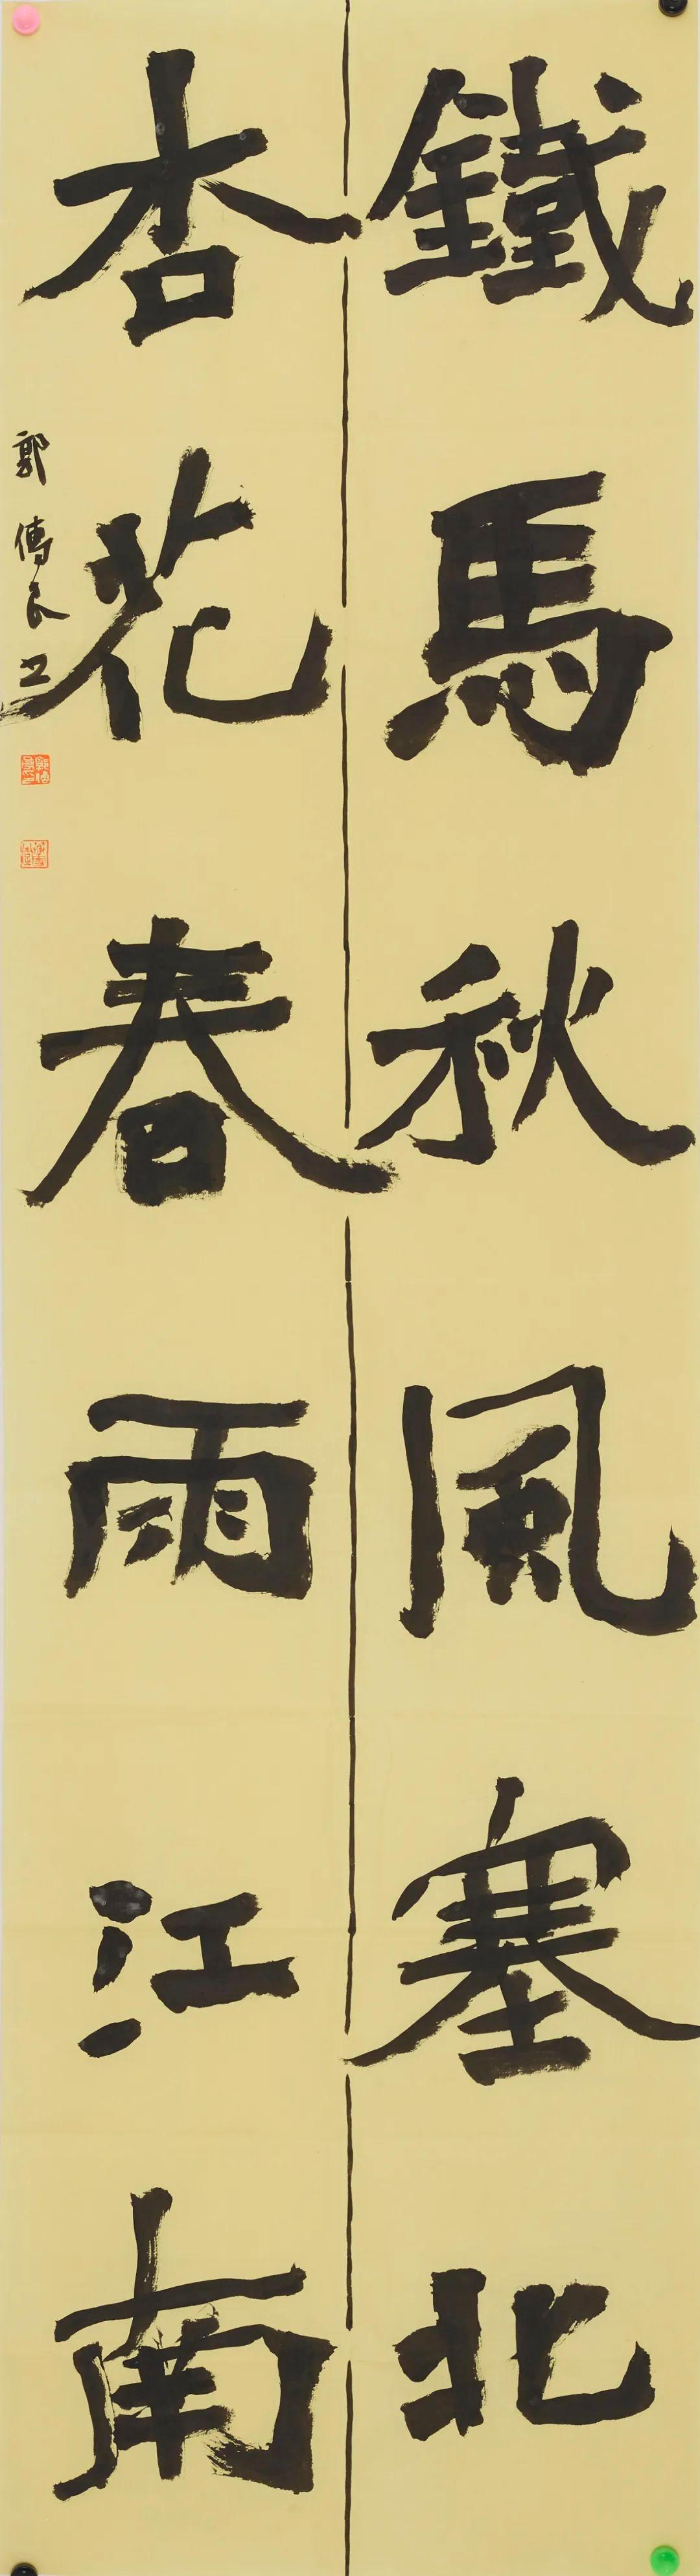 鐵馬秋風塞北
杏花春雨江南
郭傳良书